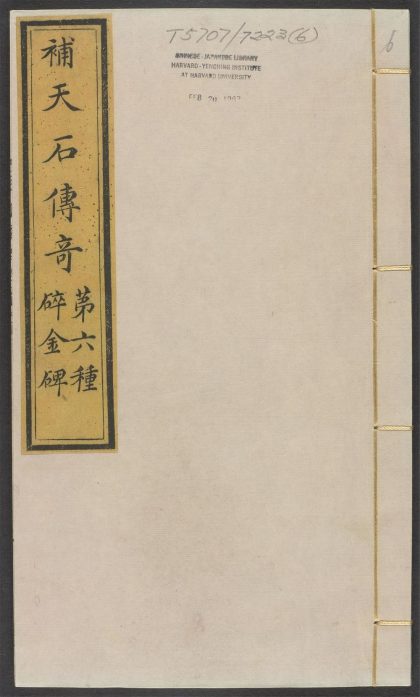 T5707/7223(6)
CHINESE-JAPANESE LIBRARY
HARVARD-YENCHING INSTITUTE
AT HARVARD UNIVERSITY
FEB 20
6
補天石傳奇
第六種
碎金碑